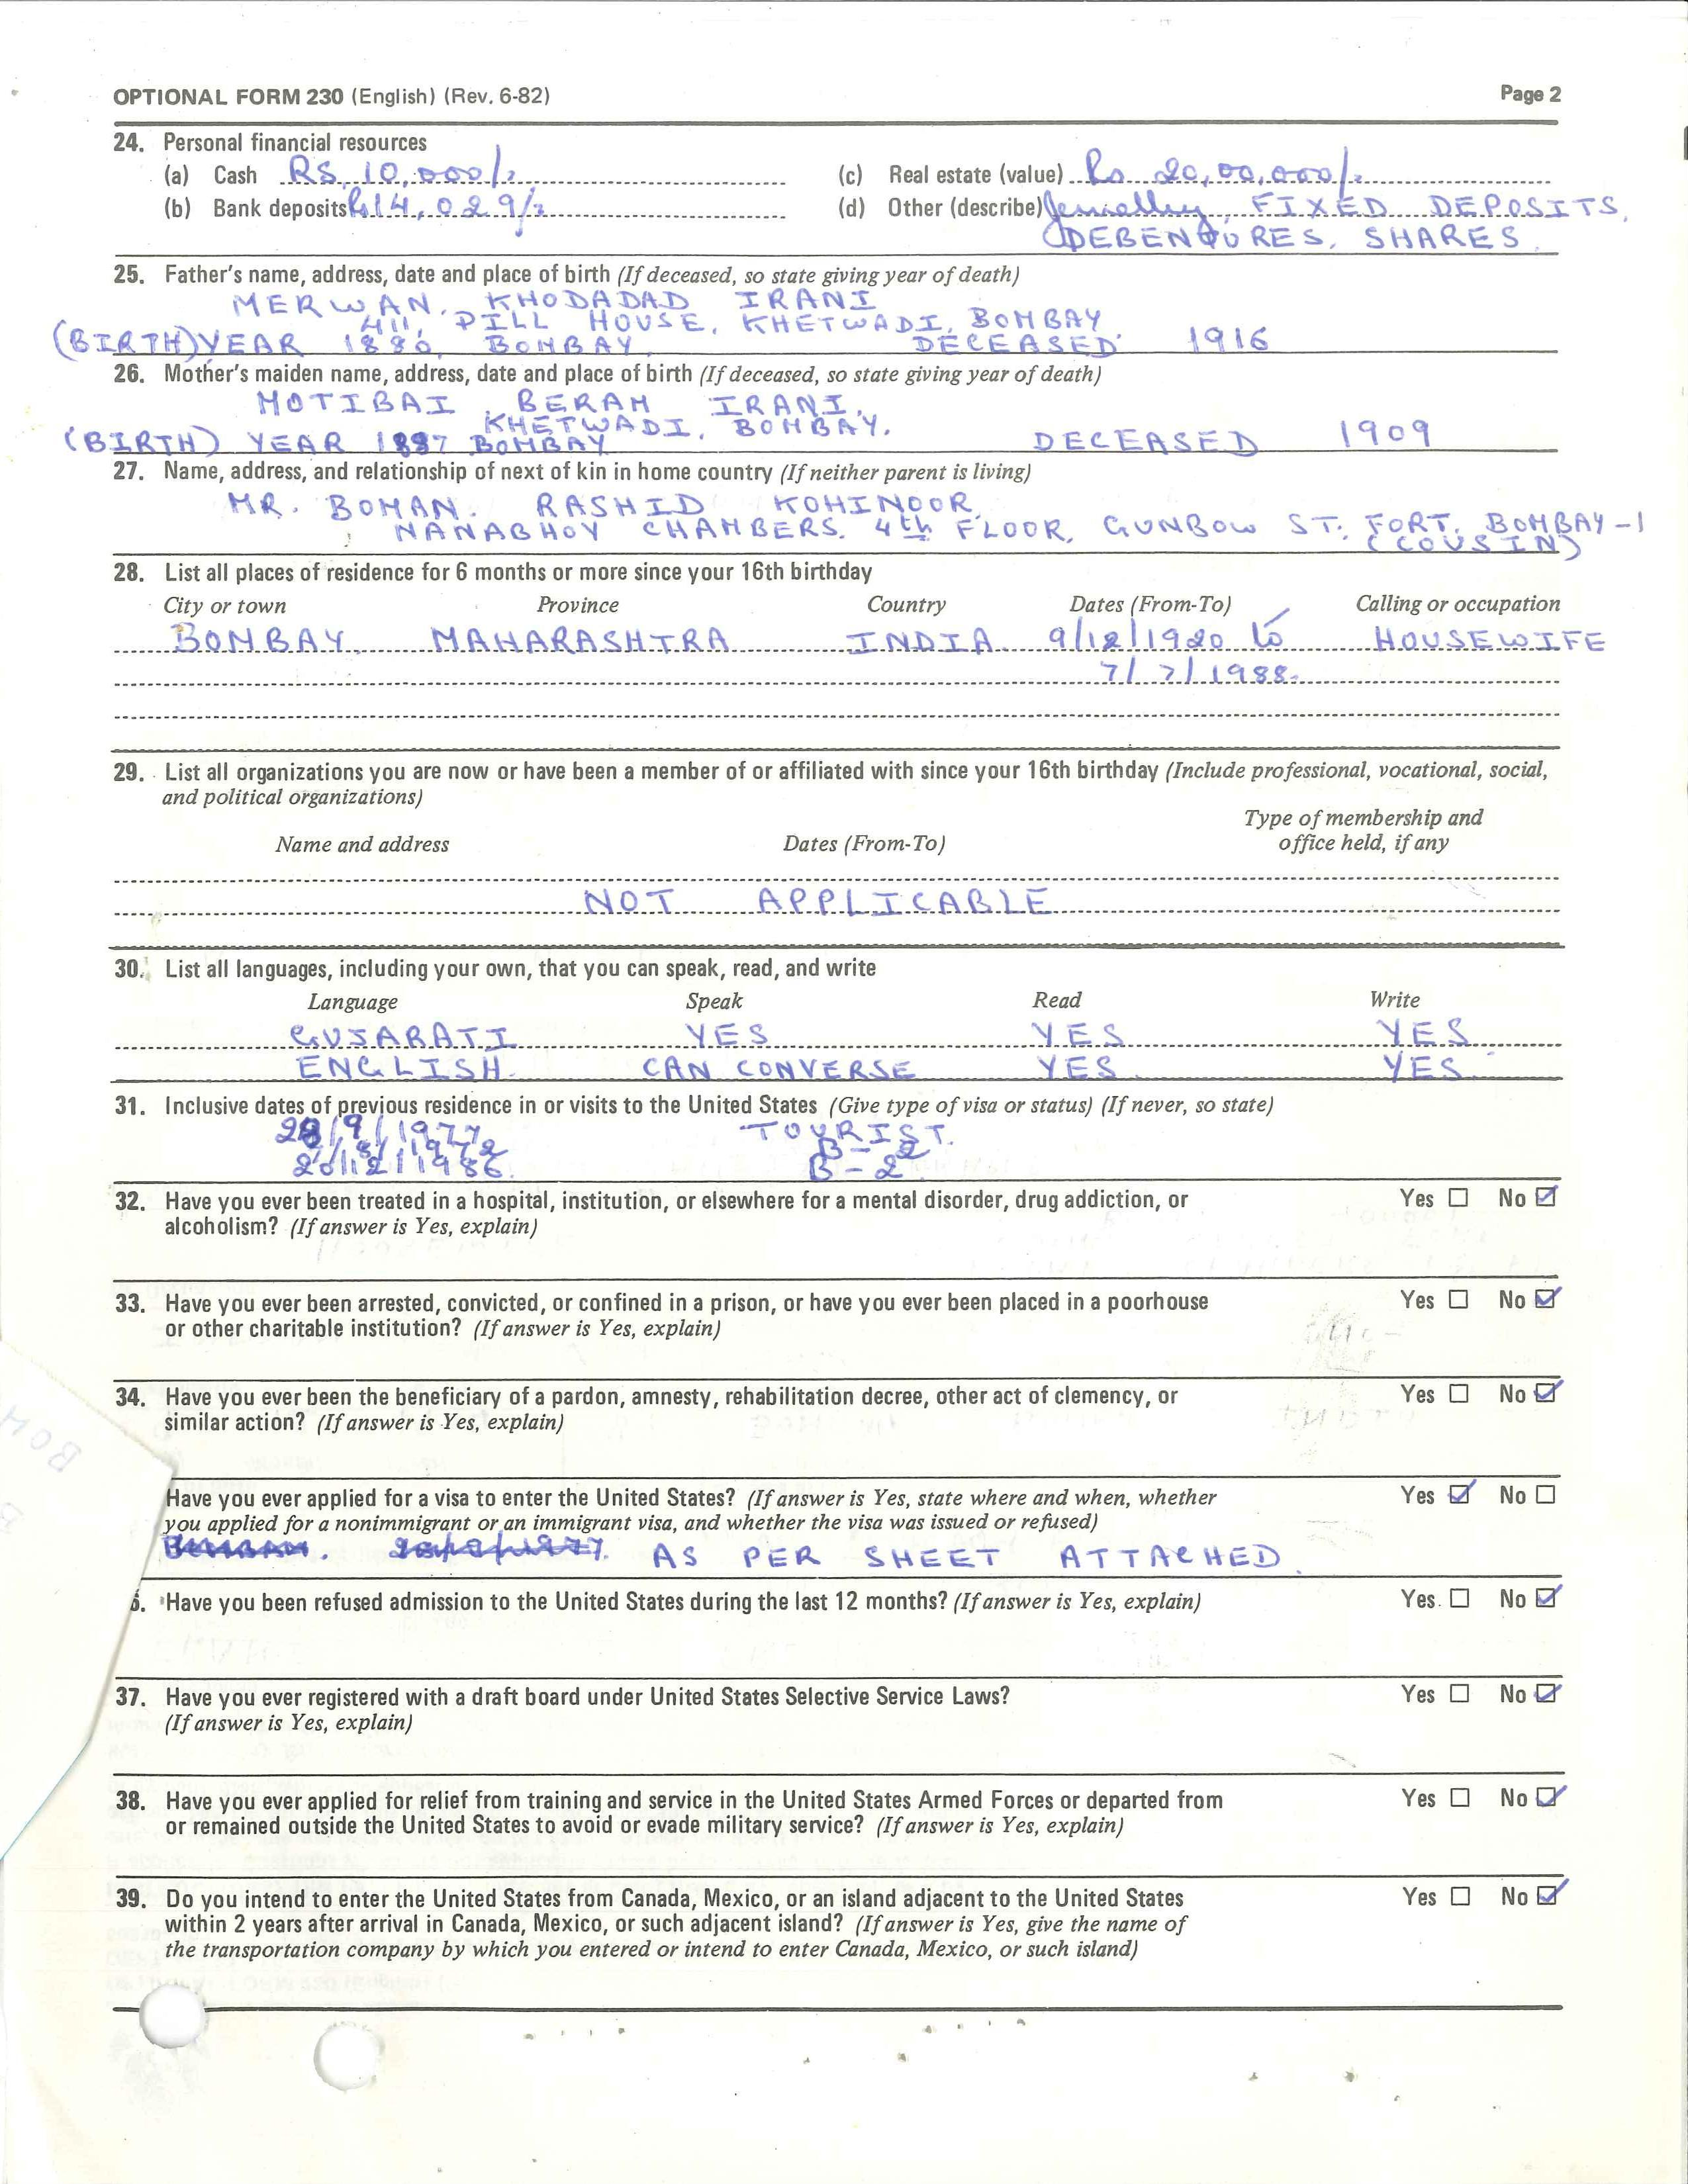 OPTIONAL FORM 230 (English) (Rev. 6-82) Page 2
24. Personal financial resources
(a) Cash RS. 10,000/- (c) Real estate (value) Rs 20,00,000/-
(b) Bank deposits Rs 14,029/- (d) Other (describe) Jewellry, FIXED DEPOSITS,
DEBENTURES, SHARES.
25. Father's name, address, date and place of birth (If deceased, so state giving year of death)
MERWAN. KHODADAD IRANI
411, PILL HOUSE, KHETWADI, BOMBAY
(BIRTH) YEAR 1880, BOMBAY. DECEASED 1916
26. Mother's maiden name, address, date and place of birth (If deceased, so state giving year of death)
MOTIBAI BERAM IRANI.
KHETWADI, BOMBAY.
(BIRTH) YEAR 1887 BOMBAY DECEASED 1909
27. Name, address, and relationship of next of kin in home country (If neither parent is living)
MR. BOMAN. RASHID KOHINOOR
NANABHOY CHAMBERS. 4th FLOOR, GUNBOW ST. FORT. BOMBAY-1
(COUSIN)
28. List all places of residence for 6 months or more since your 16th birthday
City or town Province Country Dates (From-To) Calling or occupation
BOMBAY. MAHARASHTRA INDIA 9/12/1920 to HOUSEWIFE
7/7/1988.
29. List all organizations you are now or have been a member of or affiliated with since your 16th birthday (Include professional, vocational, social,
and political organizations)
Type of membership and
Name and address Dates (From-To) office held, if any
NOT APPLICABLE
30. List all languages, including your own, that you can speak, read, and write
Language Speak Read Write
GUJARATI YES YES YES
ENGLISH. CAN CONVERSE YES YES
31. Inclusive dates of previous residence in or visits to the United States (Give type of visa or status) (If never, so state)
/9/1977 TOURIST.
B-2
20/12/1986. B-2
32. Have you ever been treated in a hospital, institution, or elsewhere for a mental disorder, drug addiction, or Yes No
alcoholism? (If answer is Yes, explain)
33. Have you ever been arrested, convicted, or confined in a prison, or have you ever been placed in a poorhouse Yes No
or other charitable institution? (If answer is Yes, explain)
34. Have you ever been the beneficiary of a pardon, amnesty, rehabilitation decree, other act of clemency, or Yes No
similar action? (If answer is Yes, explain)
Have you ever applied for a visa to enter the United States? (If answer is Yes, state where and when, whether Yes No
you applied for a nonimmigrant or an immigrant visa, and whether the visa was issued or refused)
AS PER SHEET ATTACHED.
6. Have you been refused admission to the United States during the last 12 months? (If answer is Yes, explain) Yes No
37. Have you ever registered with a draft board under United States Selective Service Laws? Yes No
(If answer is Yes, explain)
38. Have you ever applied for relief from training and service in the United States Armed Forces or departed from Yes No
or remained outside the United States to avoid or evade military service? (If answer is Yes, explain)
39. Do you intend to enter the United States from Canada, Mexico, or an island adjacent to the United States Yes No
within 2 years after arrival in Canada, Mexico, or such adjacent island? (If answer is Yes, give the name of
the transportation company by which you entered or intend to enter Canada, Mexico, or such island)
BOM
B